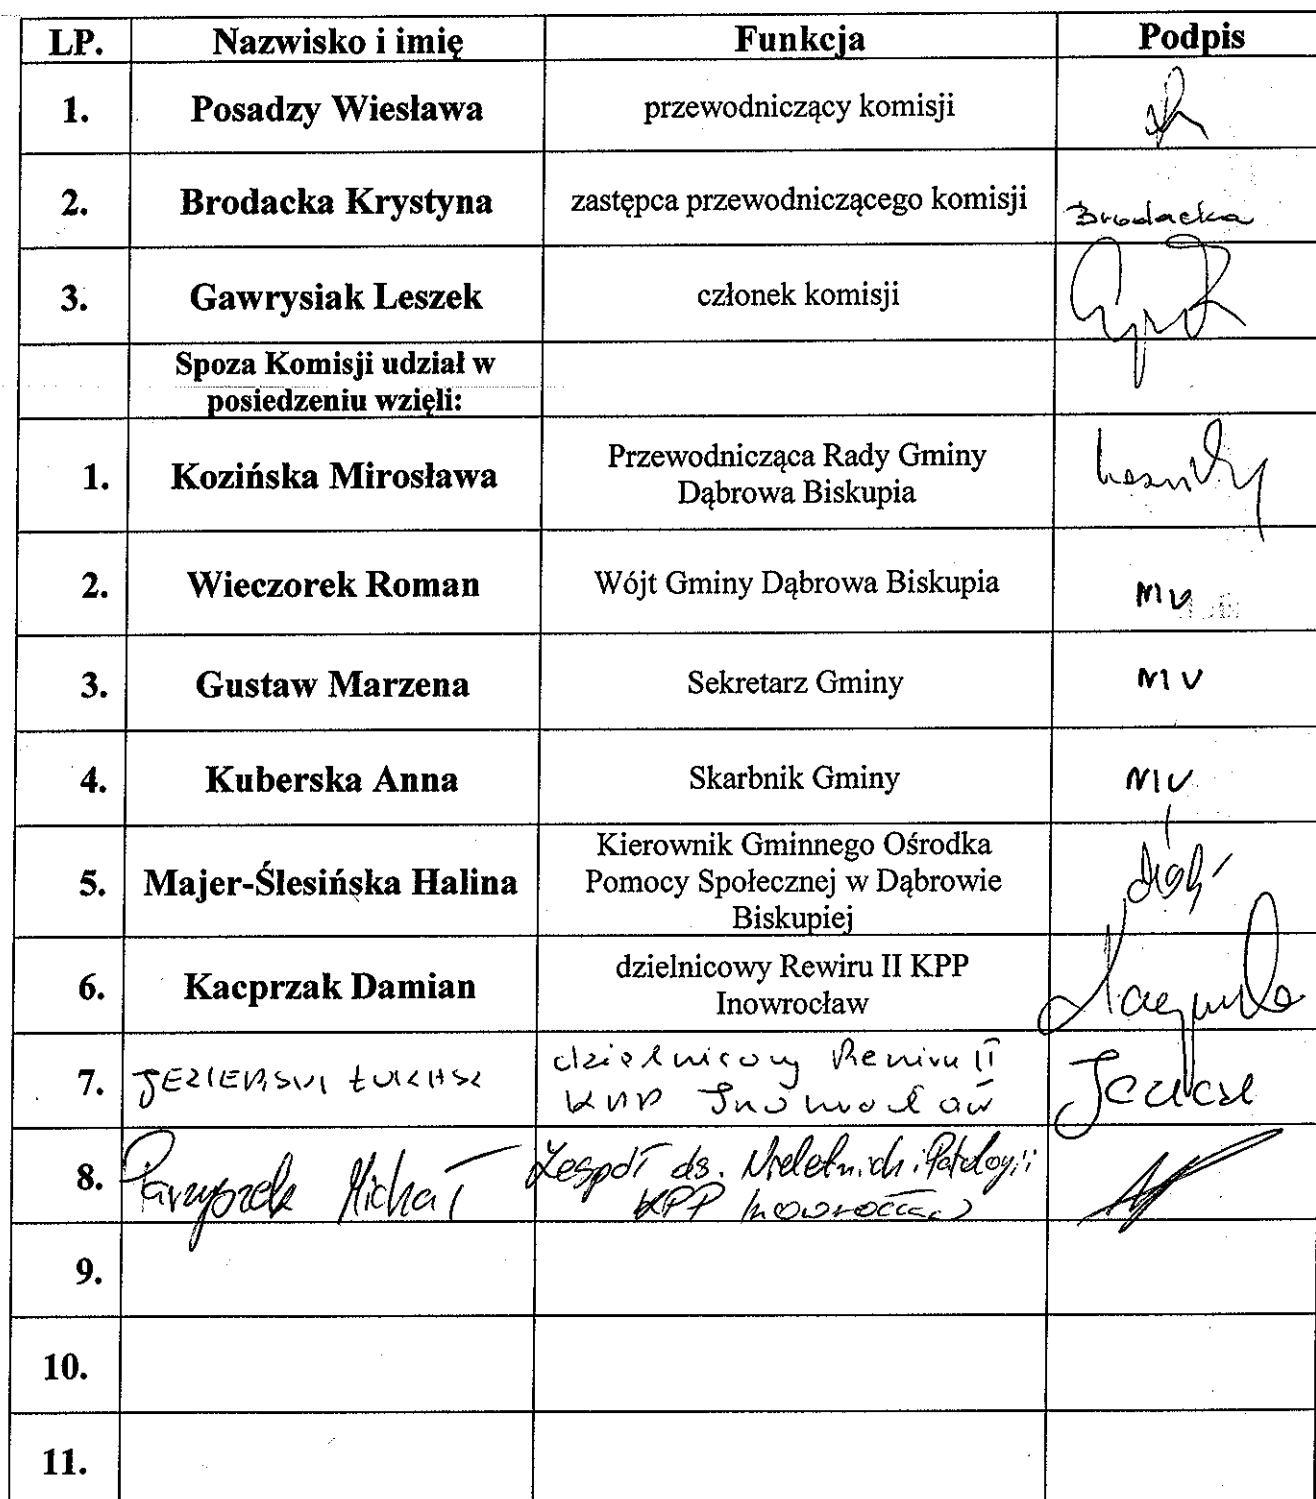 LP. Nazwisko i imię Funkcja Podpis
1. Posadzy Wiesława przewodniczący komisji
2. Brodacka Krystyna zastępca przewodniczącego komisji Brodacka
3. Gawrysiak Leszek członek komisji
Spoza Komisji udział w
posiedzeniu wzięli:
1. Kozińska Mirosława Przewodnicząca Rady Gminy
Dąbrowa Biskupia
2. Wieczorek Roman Wójt Gminy Dąbrowa Biskupia
3. Gustaw Marzena Sekretarz Gminy
4. Kuberska Anna Skarbnik Gminy
5. Majer-Ślesińska Halina Kierownik Gminnego Ośrodka
Pomocy Społecznej w Dąbrowie
Biskupiej
6. Kacprzak Damian dzielnicowy Rewiru II KPP
Inowrocław
7. JEZIERSKI ŁUKASZ dzielnicowy Rewiru II
KPP Inowrocław
8. Michał Zespół ds. Nieletnich i Patologii
KPP Inowrocław
9.
10.
11.